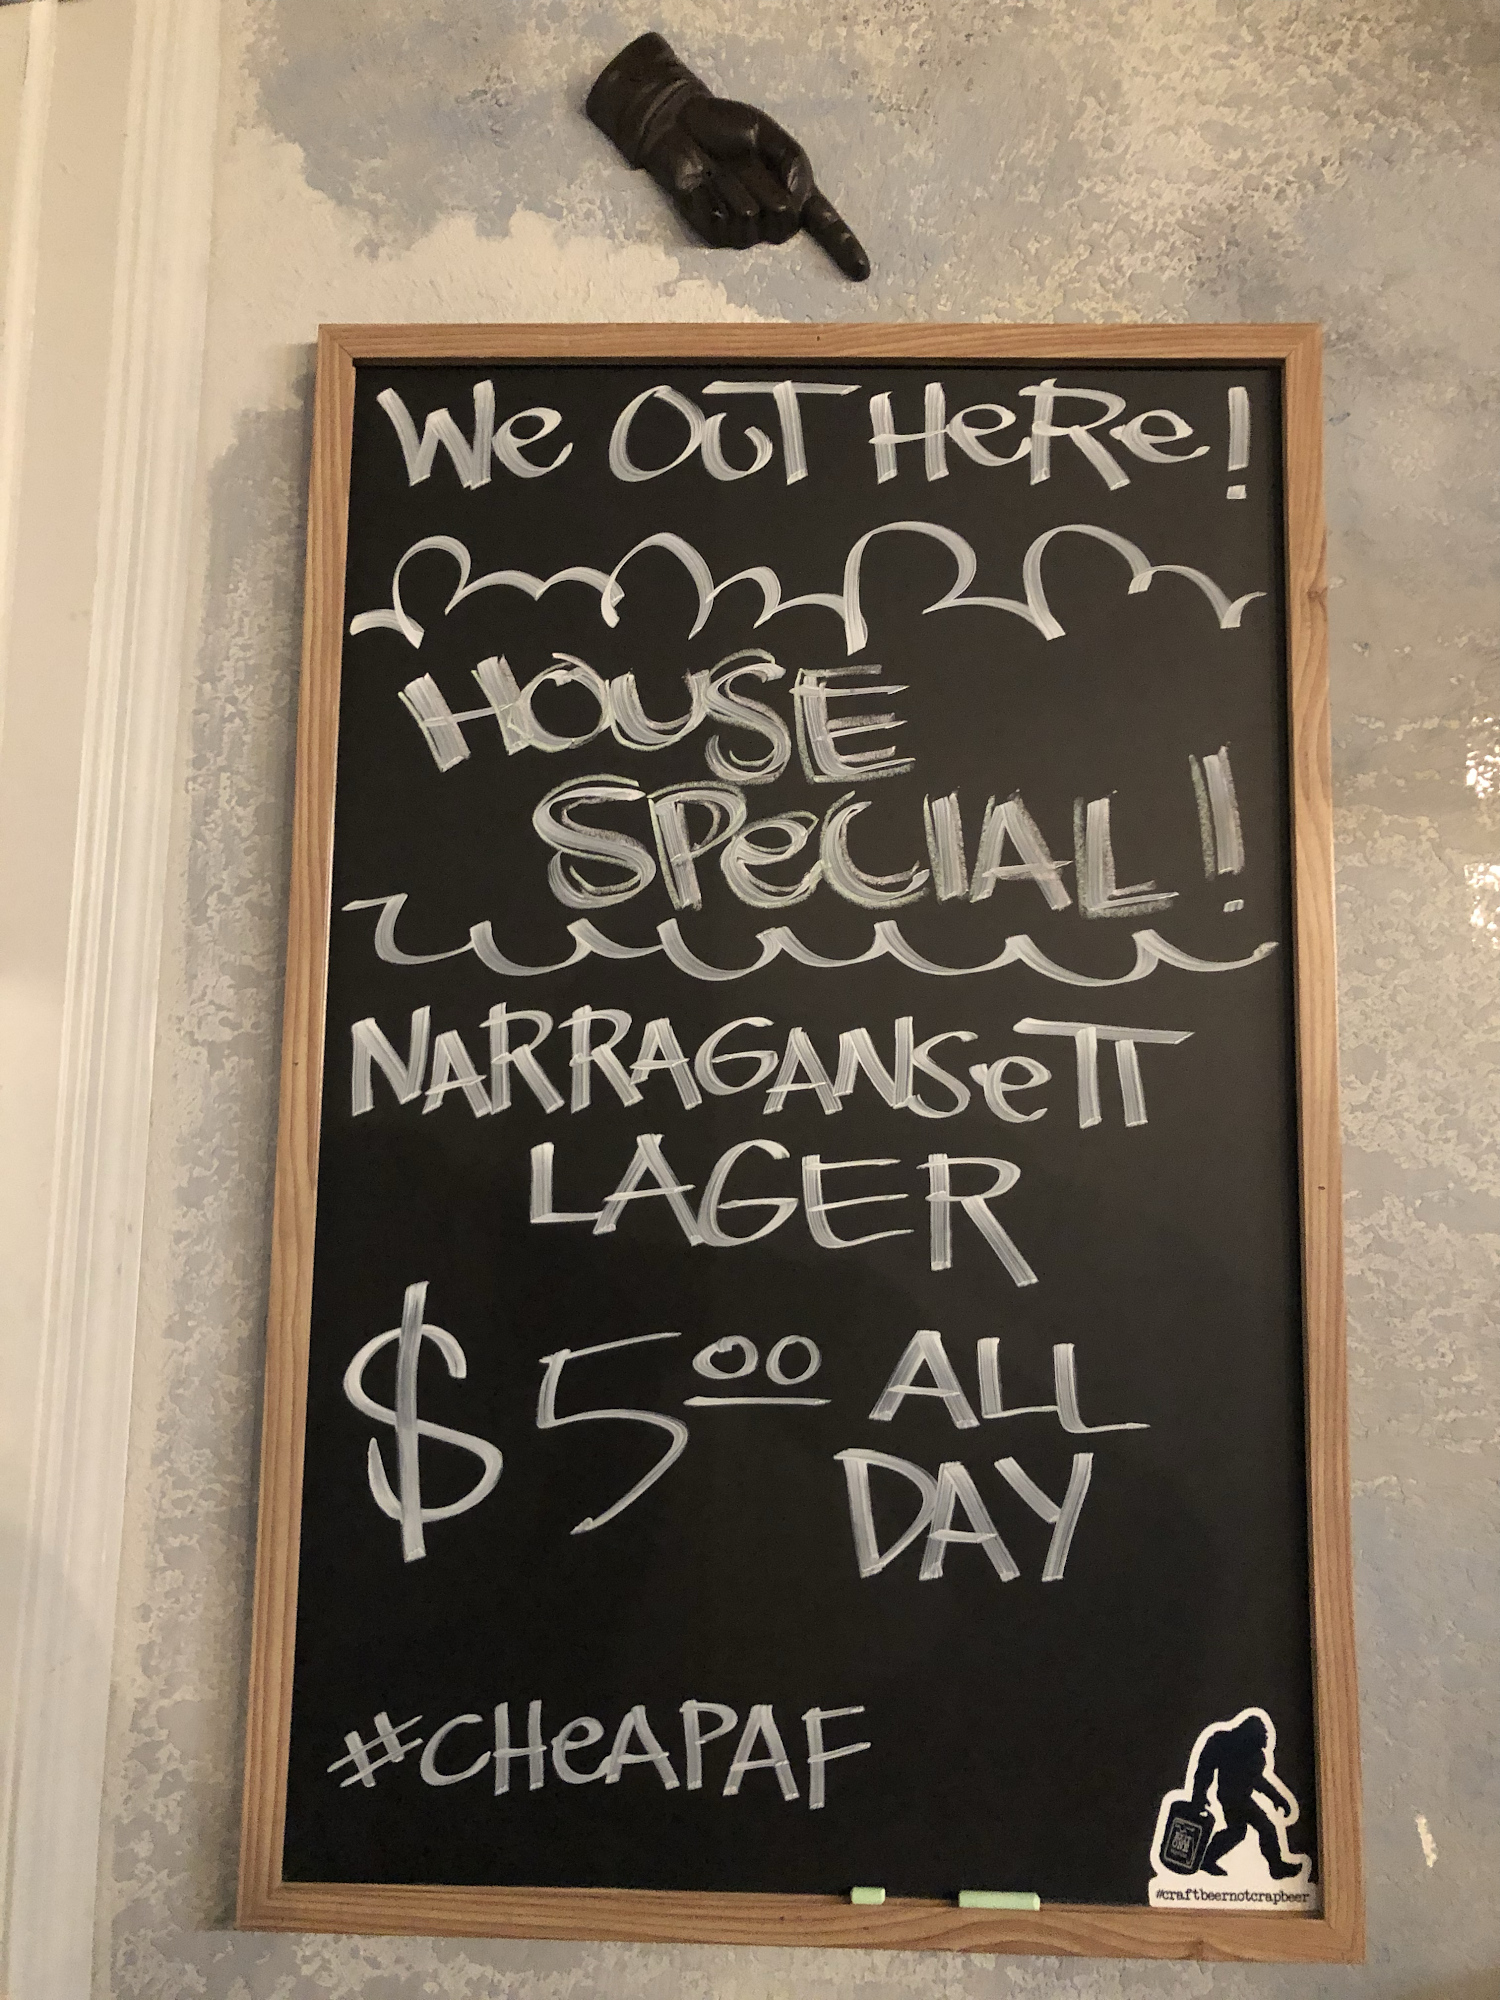 We OuT HeRe!
HOUSE
SPeCIAL!
NARRAGANSeTT
LAGER
$5.00 ALL
DAY
#CHeAPAF
#craftbeernotcrapbeer